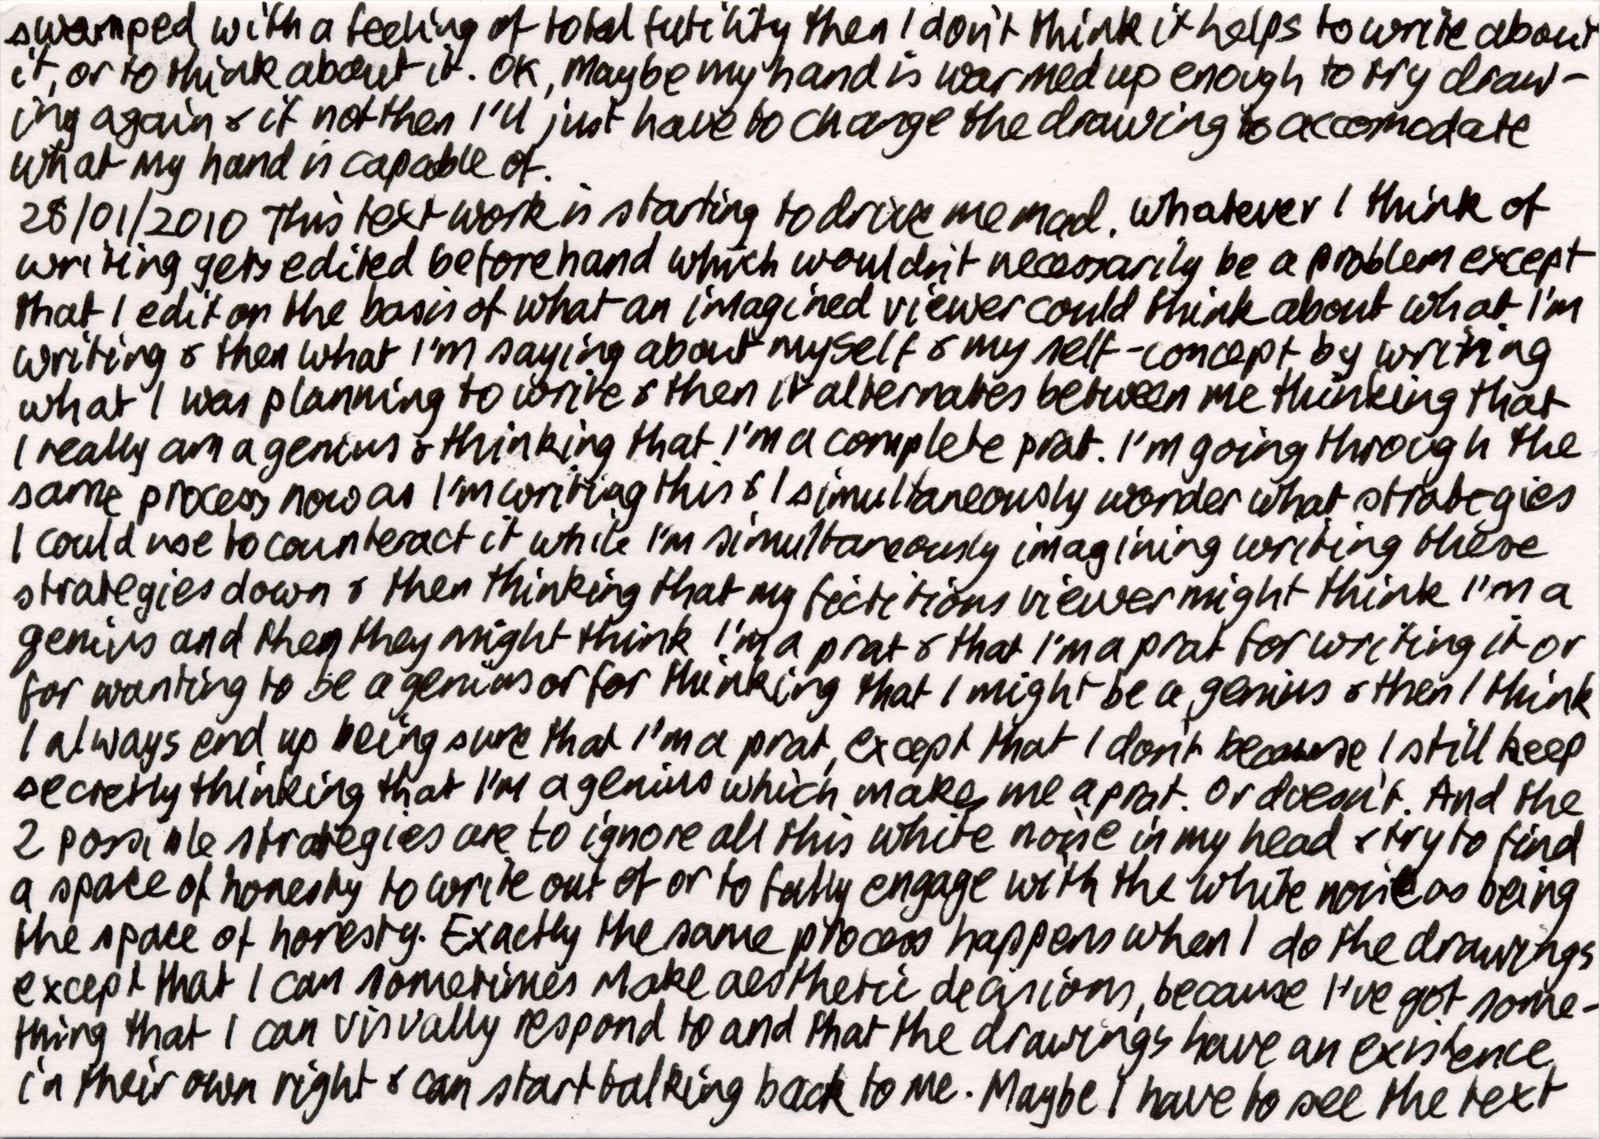 swamped with a feeling of total futility then I don't think it helps to write about
it, or to think about it. OK, maybe my hand is warmed up enough to try draw-
ing again & if not then I'll just have to change the drawing to accomodate
what my hand is capable of.
28/01/2010 This text work is starting to drive me mad. Whatever I think of
writing gets edited beforehand which wouldn't necessarily be a problem except
that I edit on the basis of what an imagined viewer could think about what I'm
writing & then what I'm saying about myself & my self-concept by writing
what I was planning to write & then it alternates between me thinking that
I really am a genius & thinking that I'm a complete prat. I'm going through the
same process now as I'm writing this & I simultaneously wonder what strategies
I could use to counteract it while I'm simultaneously imagining writing these
strategies down & then thinking that my fictitious viewer might think I'm a
genius and then they might think I'm a prat & that I'm a prat for writing it or
for wanting to be a genius or for thinking that I might be a genius & then I think
I always end up being sure that I'm a prat, except that I don't because I still keep
secretly thinking that I'm a genius which makes me a prat. Or doesn't. And the
2 possible strategies are to ignore all this white noise in my head & try to find
a space of honesty to write out of or to fully engage with the white noise as being
the space of honesty. Exactly the same process happens when I do the drawings
except that I can sometimes make aesthetic decisions, because I've got some-
thing that I can visually respond to and that the drawings have an existence
in their own right & can start talking back to me. Maybe I have to see the text